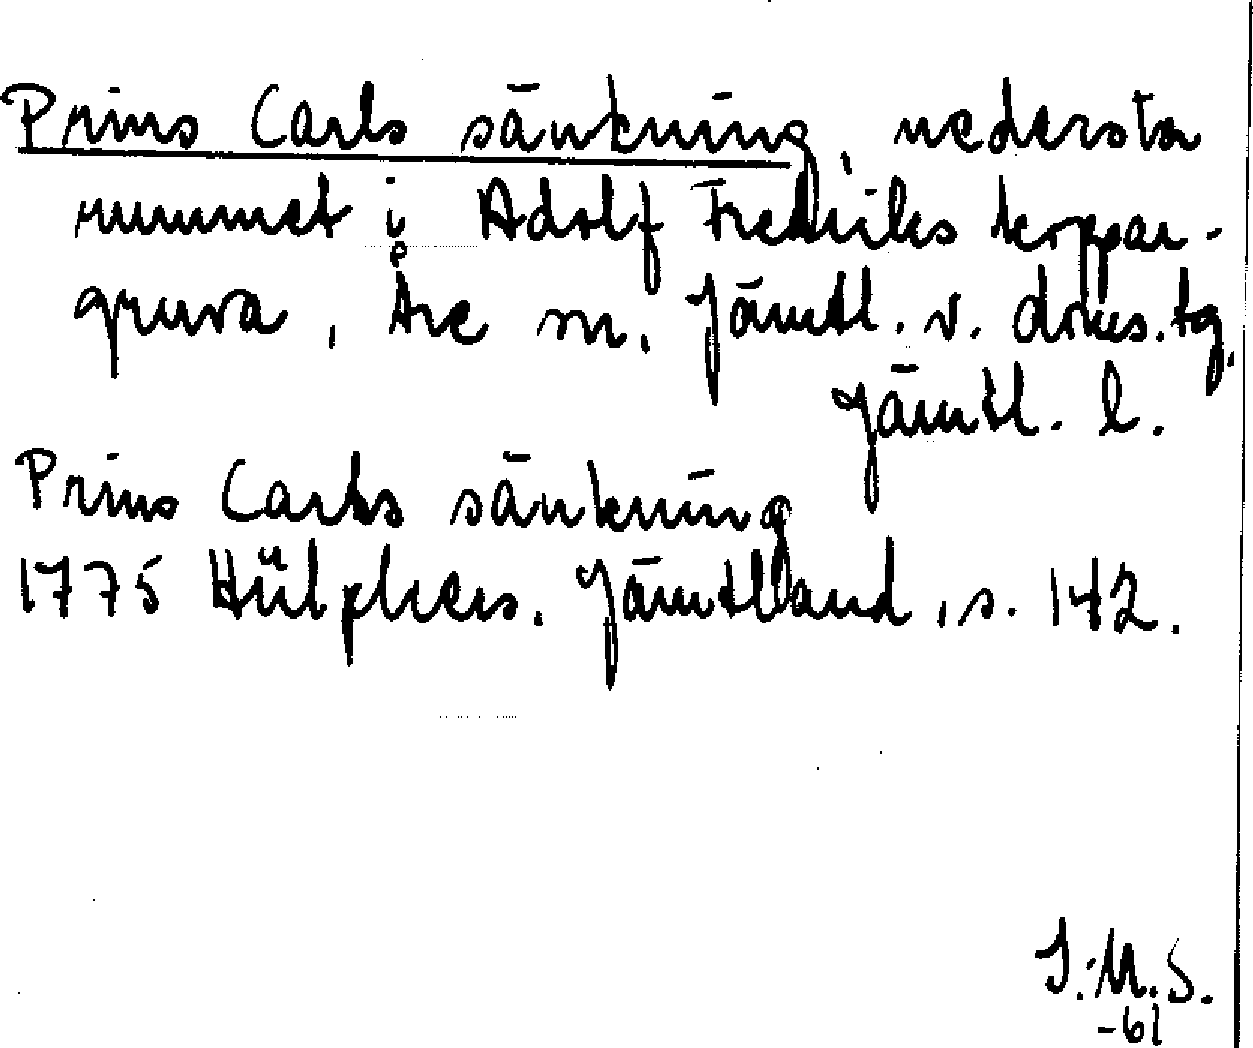 Prins Carls sänkning, nedersta
rummet i Adolf Fredriks koppar-
gruva, Åre sn. Jämtl. v. doms.tg,
Jämtl. l.
Prins Carls sänkning
1775 Hülphers. Jämtland, s. 142.
I.M.S.
-61